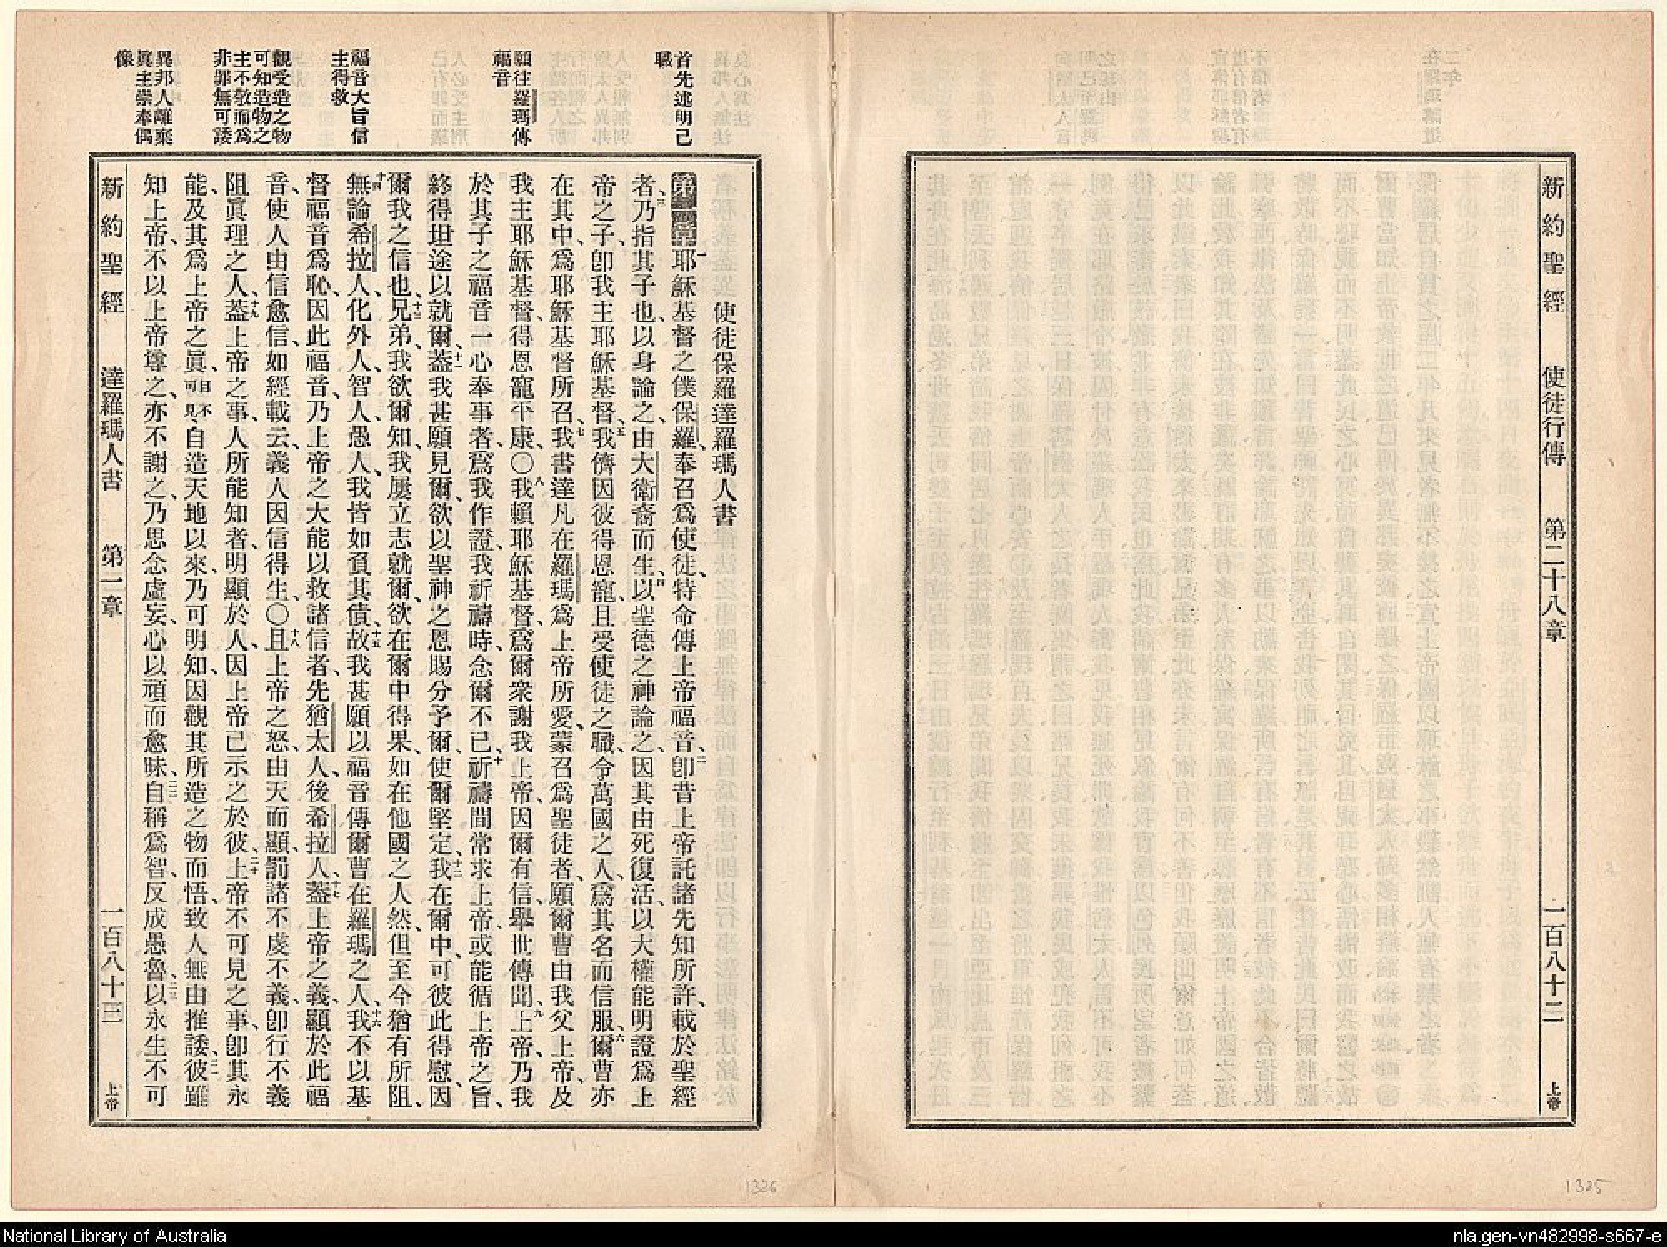 新約聖經 使徒行傳 第二十八章 一百八十二 上帝
首先述明己
職
願往羅瑪傳
福音
福音大旨信
主得救
觀受造之物
可知造物之
主不敬而爲
非罪無可諉
異邦人離棄
眞主崇奉偶
像
使徒保羅達羅瑪人書
第一章一耶穌基督之僕保羅、奉召爲使徒、特命傳上帝福音、二卽昔上帝託諸先知所許、載於聖經
者、三乃指其子也、以身論之、由大衞裔而生、四以聖德之神論之、因其由死復活、以大權能明證爲上
帝之子、卽我主耶穌基督、五我儕因彼得恩寵、且受使徒之職、令萬國之人、爲其名而信服、六爾曹亦
在其中、爲耶穌基督所召、七我書達凡在羅瑪、爲上帝所愛、蒙召爲聖徒者、願爾曹由我父上帝、及
我主耶穌基督、得恩寵平康、〇八我賴耶穌基督、爲爾衆謝我上帝、因爾有信、舉世傳聞、九上帝乃我
於其子之福音、一心奉事者、爲我作證、我祈禱時、念爾不已、十祈禱間常求上帝、或能循上帝之旨、
終得坦途以就爾、十一蓋我甚願見爾、欲以聖神之恩賜分予爾、使爾堅定、十二我在爾中、可彼此得慰、因
爾我之信也、十三兄弟、我欲爾知、我屢立志就爾、欲在爾中得果、如在他國之人然、但至今猶有所阻、
十四無論希拉人、化外人、智人、愚人、我皆如負其債、十五故我甚願以福音傳爾曹在羅瑪之人、十六我不以基
督福音爲恥、因此福音、乃上帝之大能、以救諸信者、先猶太人、後希拉人、十七蓋上帝之義、顯於此福
音、使人由信愈信、如經載云、義人因信得生、〇十八且上帝之怒、由天而顯、罰諸不虔不義、卽行不義
阻眞理之人、十九蓋上帝之事、人所能知者、明顯於人、因上帝已示之於彼、二十上帝不可見之事、卽其永
能、及其爲上帝之眞、自造天地以來、乃可明知、因觀其所造之物而悟、致人無由推諉、二一彼雖
知上帝、不以上帝尊之、亦不謝之、乃思念虛妄、心以頑而愈昧、二二自稱爲智、反成愚魯、二三以永生不可
新約聖經 達羅瑪人書 第一章 一百八十三 上帝
1326
1325
National Library of Australia
nla.gen-vn482998-s667-e